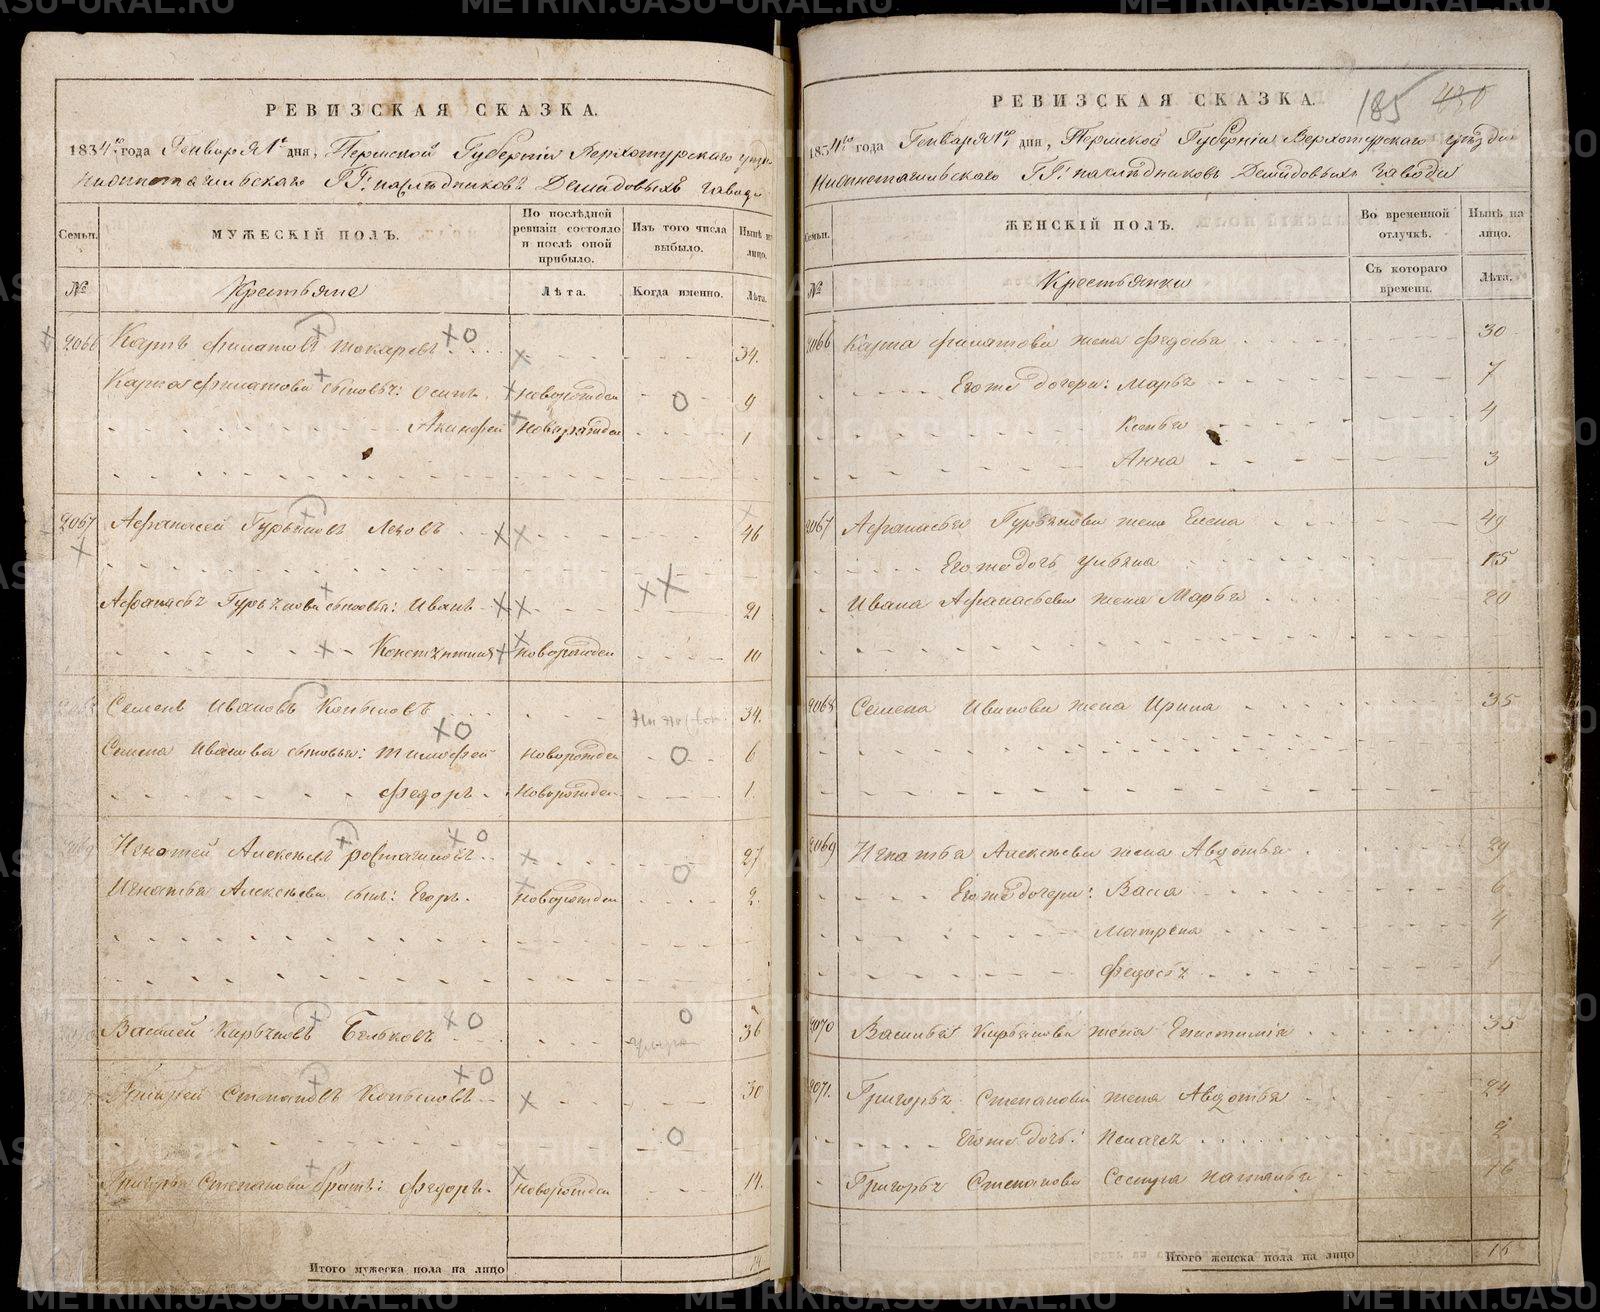 РЕВИЗСКАЯ СКАЗКА.
1834го года Генваря 1го дня, Пермской Губерніи Верхотурскаго уезда
Нижнетагильскаго ГГ: наслѣдниковъ Демидовыхъ завода
Семьи.
МУЖЕСКІЙ ПОЛЪ.
По послѣдней ревизіи состояло и послѣ оной прибыло.
Изъ того числа выбыло.
Нынѣ на лицо.
№
Крестьяне
Лѣта.
Когда именно.
Лѣта.
2066 Карпъ Филатовъ Токаревъ 34.
Карпа Филатова сыновья: Осипъ новорожден 9
Акинфей новорожден 1
2067 Афанасей Гурьяновъ 46
Афанасья Гурьянова сыновья: Иванъ 21
Констянтинъ новорожден 10
Семенъ Ивановъ Копыловъ 34.
Семена Иванова сыновья: Тимофей новорожден 6
Федоръ новорожден 1.
Игнатей Алексѣевъ 27
Игнатья Алексѣева сынъ: Егоръ. новорожден 2.
Василей Кирьяновъ Бельковъ 36
Григорей Степановъ Копыловъ 30
Григорья Степанова братъ: Федоръ. новорожден 14.
Итого мужеска пола на лицо
РЕВИЗСКАЯ СКАЗКА.
185 430
1834го года Генваря 1го дня, Пермской Губерніи Верхотурскаго уѣзда
Нижнетагильскаго ГГ: наслѣдниковъ Демидовыхъ завода
Семьи.
ЖЕНСКІЙ ПОЛЪ.
Во временной отлучкѣ.
Нынѣ на лицо.
№
Крестьянки
Съ котораго времени.
Лѣта.
2066 Карпа Филатова жена Федосья 30
Его же дочери: Марья 7
4
Анна 3
2067 Афанасья Гурьянова жена Елена 49
Его же дочь Ульяна 15
Ивана Афанасьева жена Марья 20
2068 Семена Иванова жена Ирина 35
2069 Игнатья Алексѣева жена Авдотья 29
Его же дочери: Васса 6
Матрена 4
Федосья 1
2070 Василья Кирьянова жена 35
2071. Григорья Степанова жена Авдотья 24
Его же дочь: Пелагея 2
Григорья Степанова сестра Наталья 16
Итого женска пола на лицо 16
METRIKI.GASO-URAL.RU